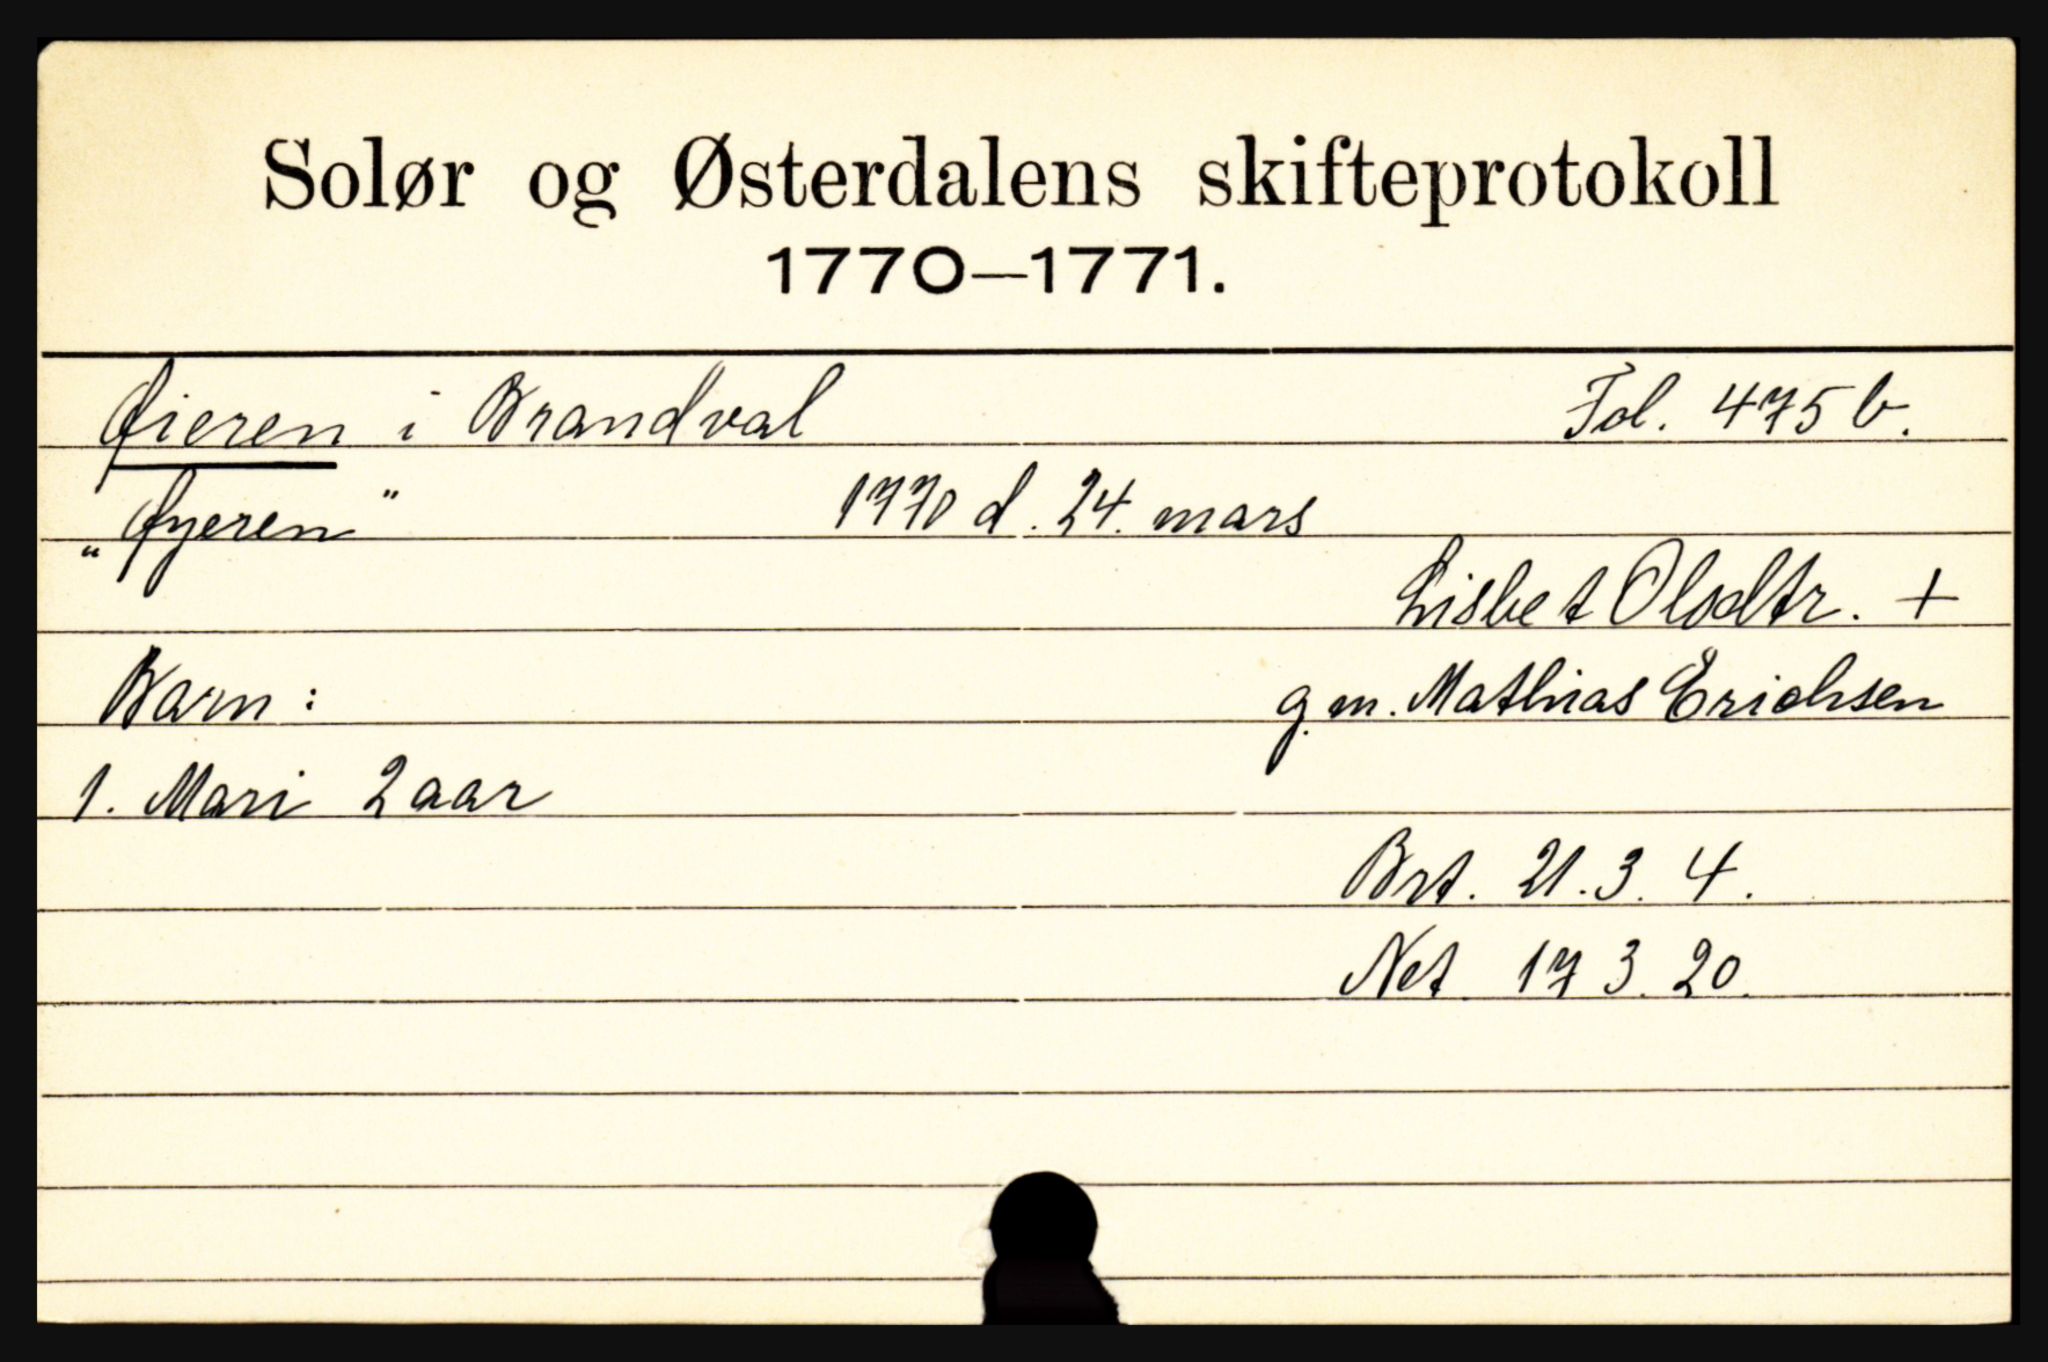 Solør og Østerdalens skifteprotokoll
1770—1771.
Øieren i Brandval Fol. 475 b.
„Øyeren" 1770 d. 24. mars
Lisbet Olsdtr. +
Barn: g.m. Mathias Erichsen
1. Mari 2 aar
Brt. 21. 3. 4.
Net 17 3. 20.